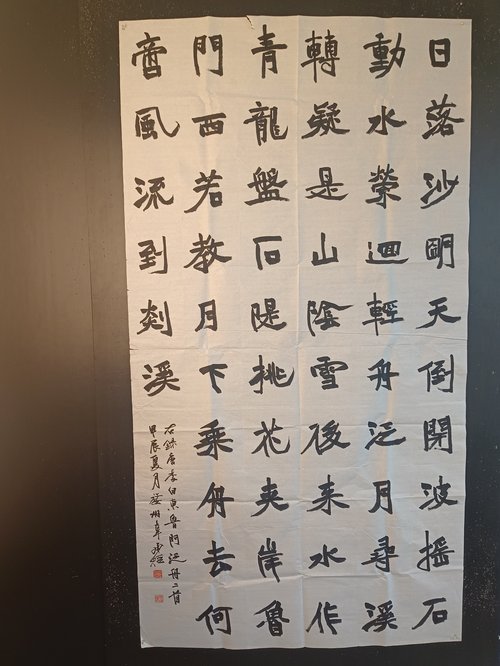 日落沙明天倒開波摇石
動水榮迴輕舟泛月尋溪
轉疑是山陰雪後来水作
青龍盤石隄桃花夾岸魯
門西若教月下乘舟去何
啻風流到剡溪
右錄唐李白東魯門泛舟二首
甲辰夏月